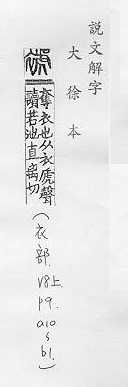 說文解字
大徐本
褫
奪衣也从衣虒聲
讀若池直离切
(衣部. V8上. p9. a10~b1.)